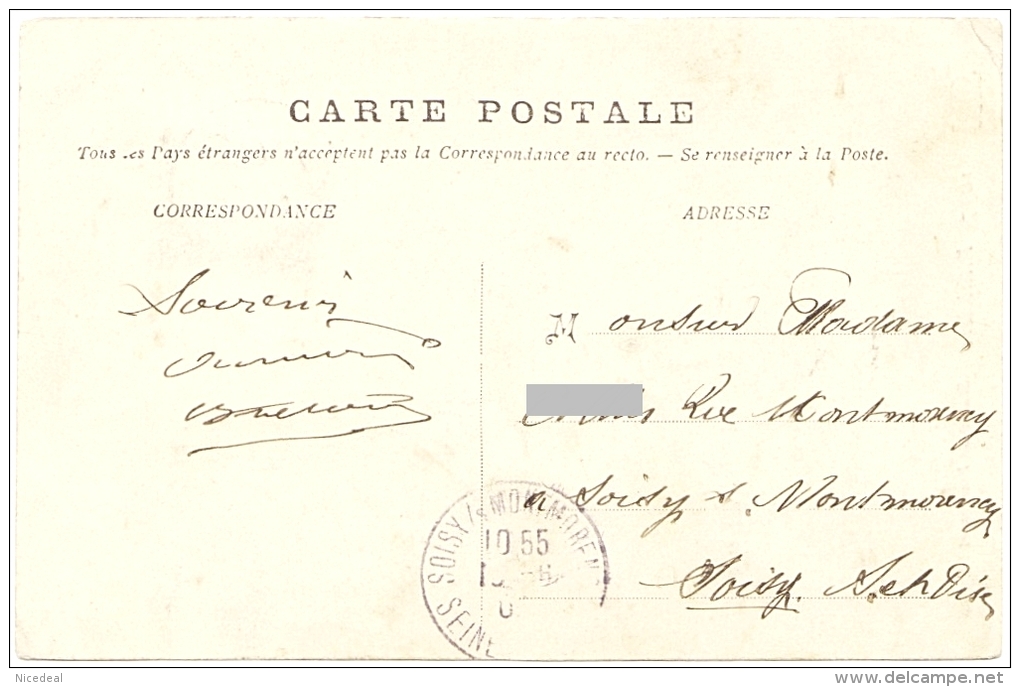 CARTE POSTALE
Tous les Pays étrangers n'acceptent pas la Correspondance au recto. — Se renseigner à la Poste.
CORRESPONDANCE
ADRESSE
Souvenir
Monsieur Madame
Rue Montmorency
a Soisy s Montmorency
Soisy. S. et Oise
SOISY /s MONTMOREN
10 55
SEINE
Nicedeal
delcampe.net